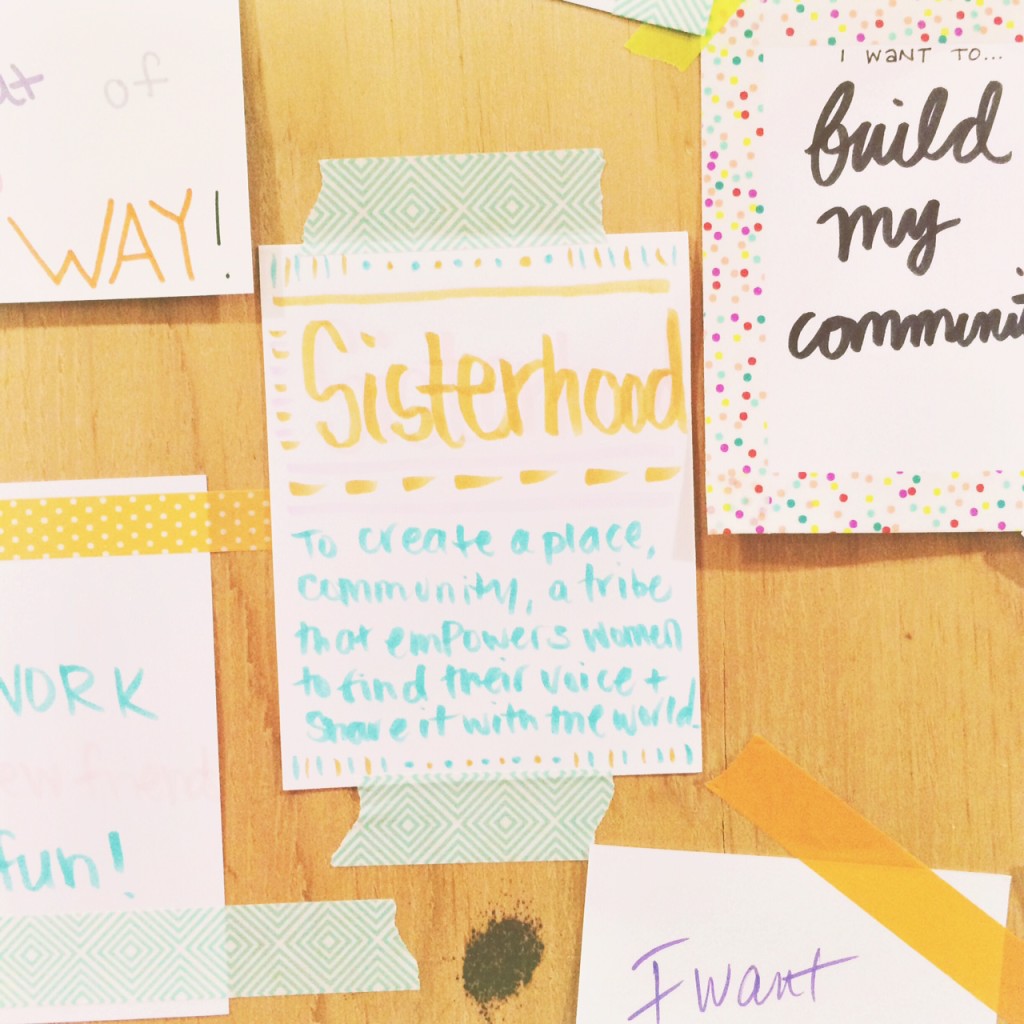 of
WAY!
I WANT TO...
build
my
Sisterhood
To create a place,
community, a tribe
that emPowers women
to find their voice +
share it with the world.
WORK
fun!
I want